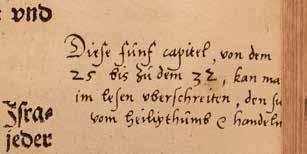 vnd
Diese fünf capitel, von dem
25 bis zu dem 32, kan ma
im lesen vberschreiten, den su
vom heiligthumb & handeln
Isra-
jeder